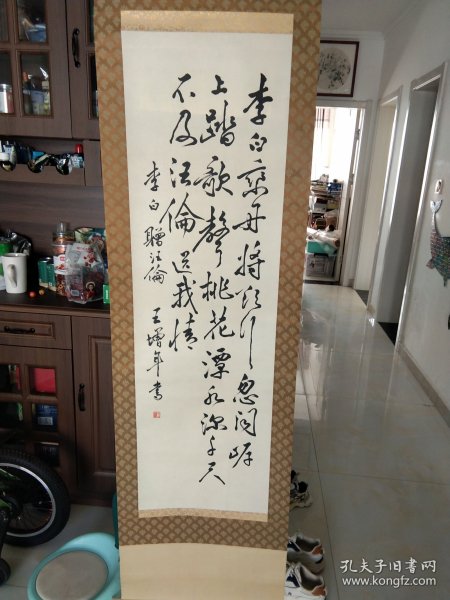 李白乘舟将欲行忽闻岸
上踏歌声桃花潭水深千尺
不及汪倫送我情
李白贈汪倫 王增年書
孔夫子旧书网
www.kongfz.com